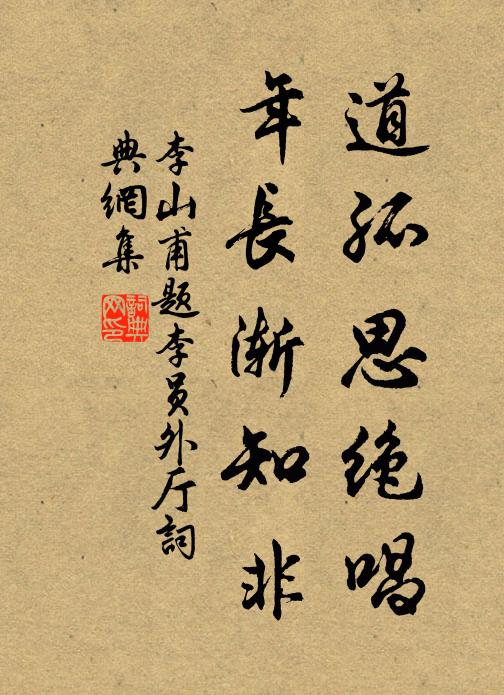 道孤思绝唱
年長漸知非
李山甫题李员外厅詞
典網集
詞典网印